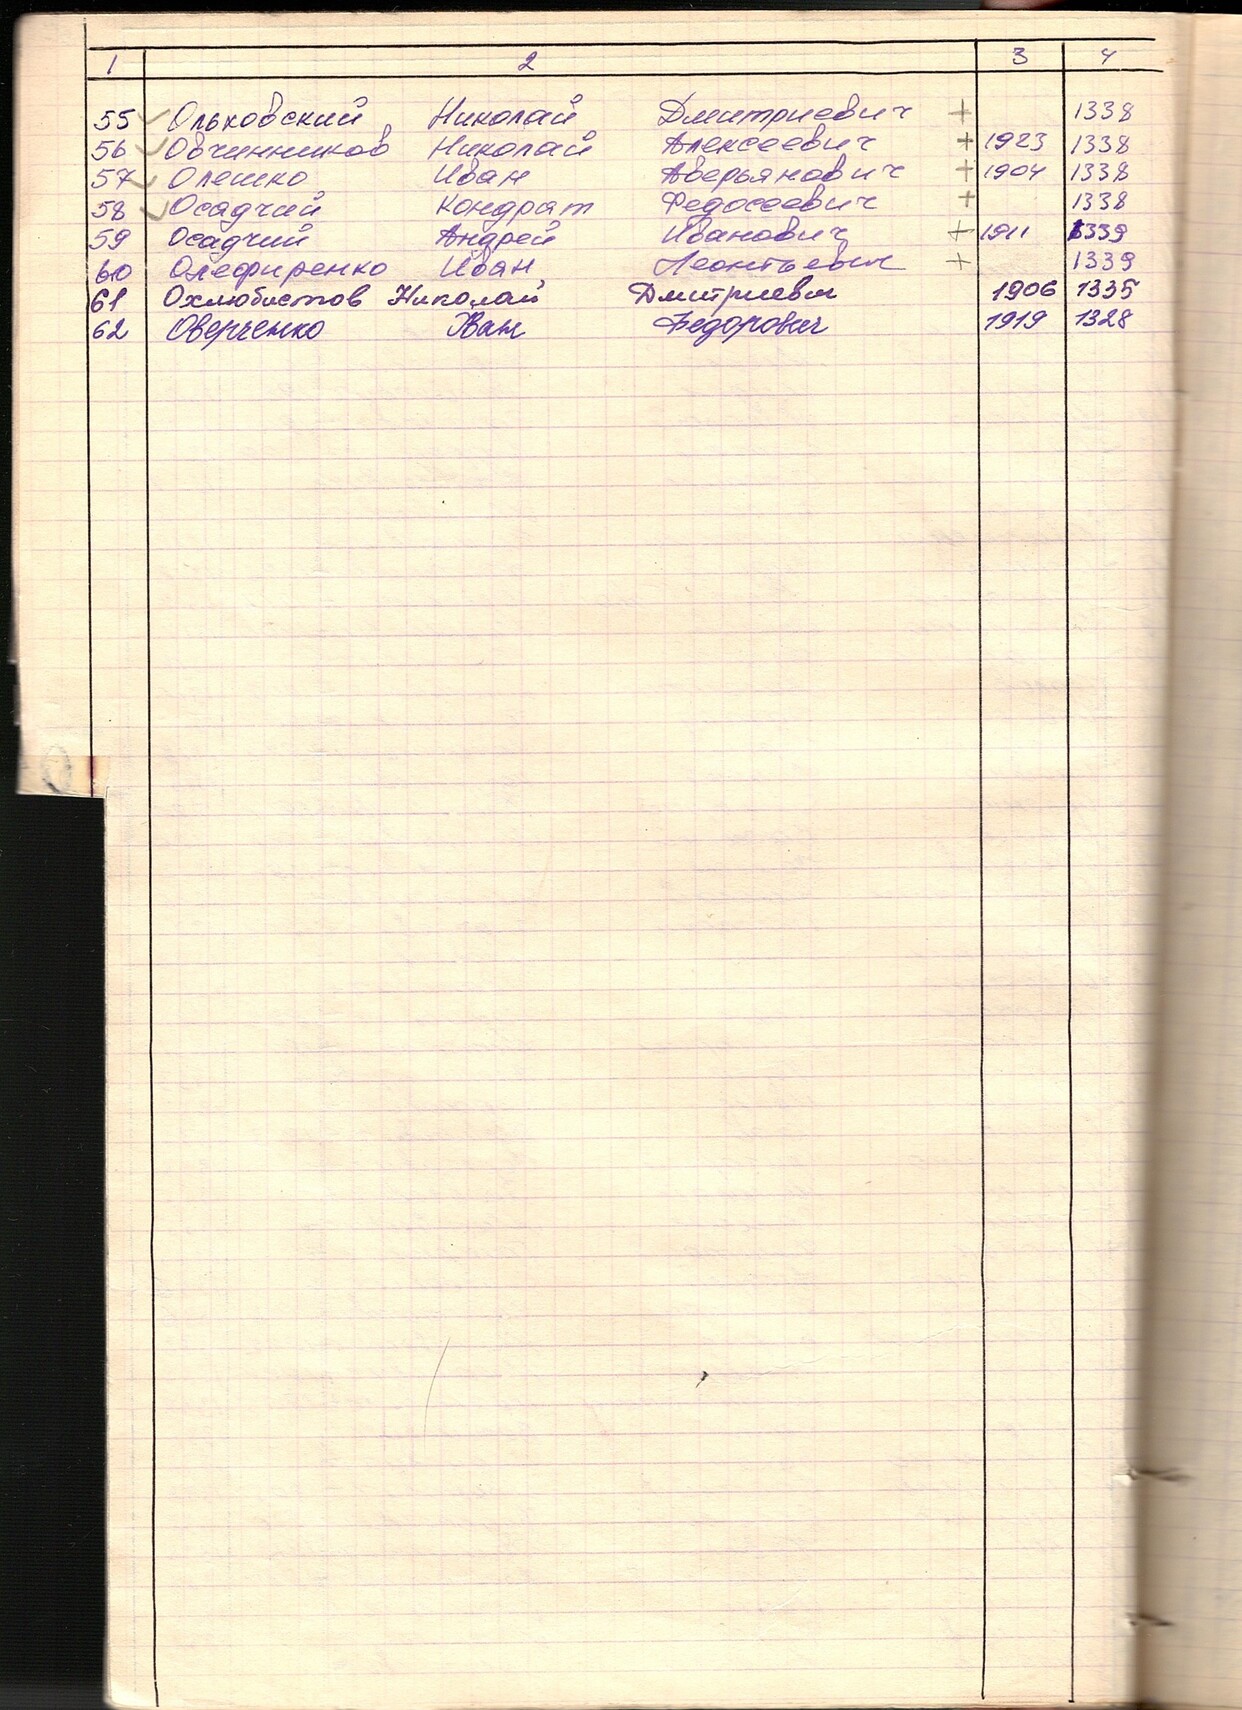 1 2 3 4
55 Ольховский Николай Дмитриевич + 1338
56 Овчинников Николай Алексеевич + 1923 1338
57 Олешко Иван Аверьянович + 1904 1338
58 Осадчий Кондрат Федосеевич + 1338
59 Осадчий Андрей Иванович + 1911 1339
60 Олефиренко Иван Леонтьевич + 1339
61 Охлюбистов Николай Дмитриевич 1906 1335
62 Оверченко Иван Федорович 1919 1328